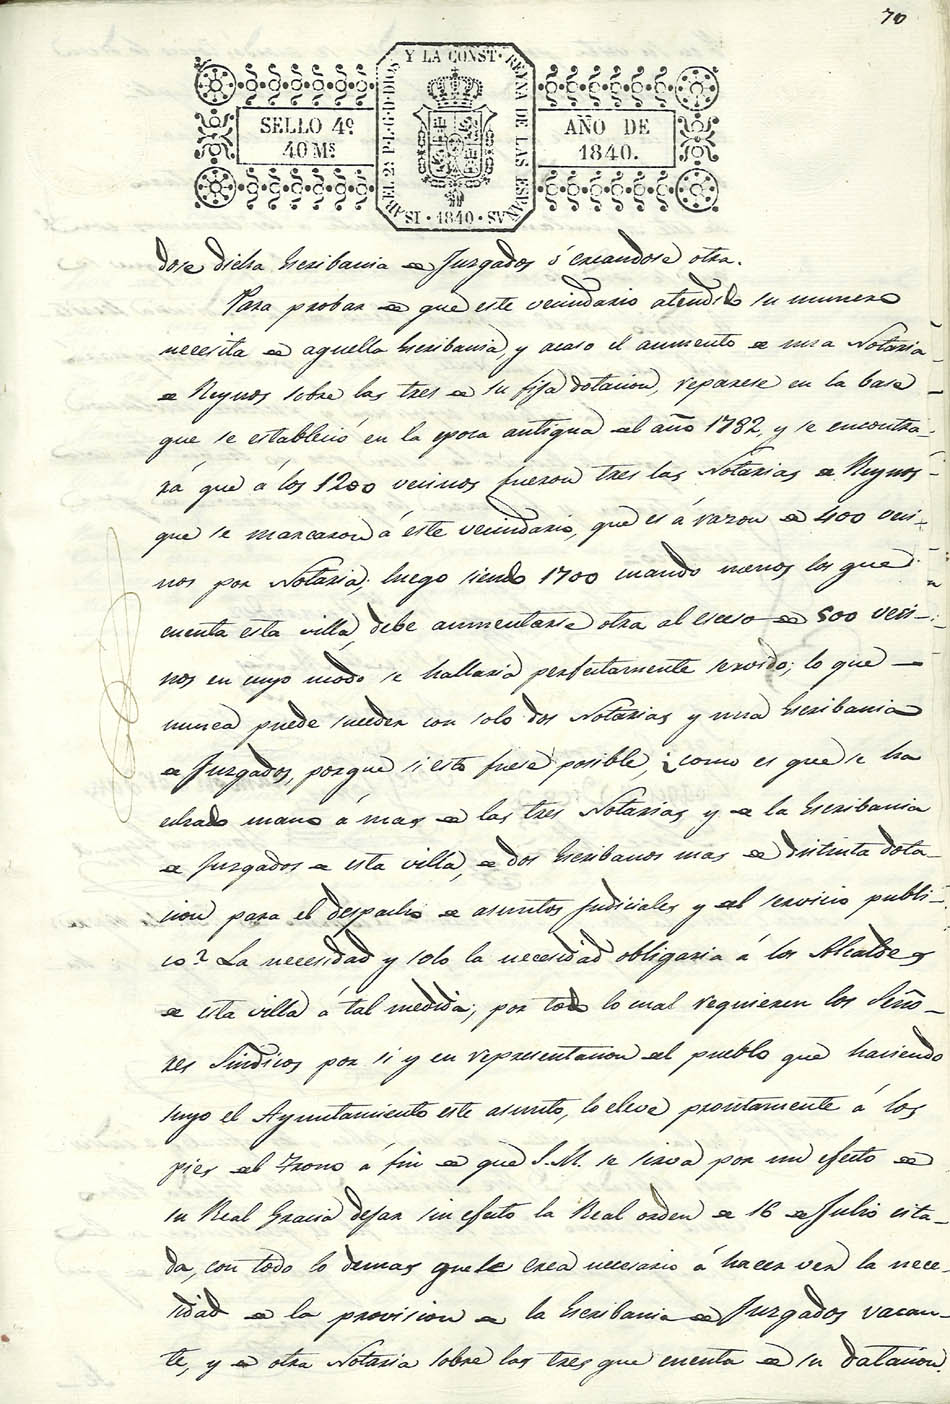 70
SELLO 4º
40 Ms
ISABEL 2ª P.L.G.D.DIOS Y LA CONST. REYNA DE LAS ESPAÑAS
1840
AÑO DE
1840.
dose dicha Escribania de Juzgados ó creandose otra.
Para probar de que este vecindario atendido su numero
necesita de aquella Escribania, y acaso el aumento de una Notaria
de Reynos sobre las tres de su fija dotacion, reparese en la base
que se estableció en la epoca antigua del año 1782, y se encontra-
rá que á los 1200 vecinos fueron tres las Notarias de Reynos
que se marcaron á este vecindario, que es á razon de 400 veci-
nos por Notaria; luego siendo 1700 cuando menos los que
cuenta esta villa, debe aumentarse otra al esceso de 500 veci-
nos en cuyo modo se hallaria perfectamente servido; lo que
nunca puede suceder con solo dos Notarias y una Escribania
de Juzgados, porque si esto fuese posible, ¿como es que se ha
echado mano á mas de las tres Notarias y de la Escribania
de Juzgados de esta villa, de dos Escribanos mas de distinta dota-
cion para el despacho de asuntos Judiciales y del servicio publi-
co? La necesidad y solo la necesidad obligaria á los Alcaldes
de esta villa á tal medida; por todo lo cual requieren los Seño-
res Sindicos por si y en representacion del pueblo que haciendo
suyo el Ayuntamiento este asunto, lo eleve prontamente á los
pies del Trono á fin de que S.M. se sirva por un efecto de
su Real Gracia dejar sin efecto la Real orden de 16 de Julio cita-
da, con todo lo demas que le crea necesario á hacer ver la nece-
sidad de la provision de la Escribania de Juzgados vacan-
te, y de otra Notaria sobre las tres que cuenta de su datacion.